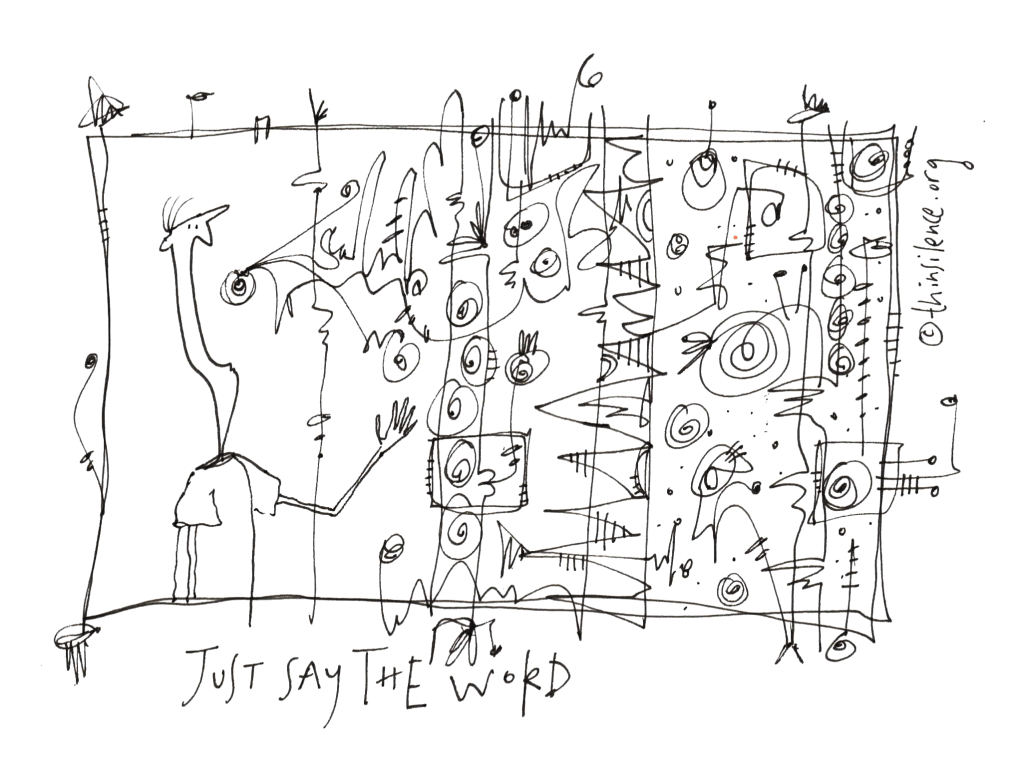 JUST SAY THE WORD
©thinsilence.org